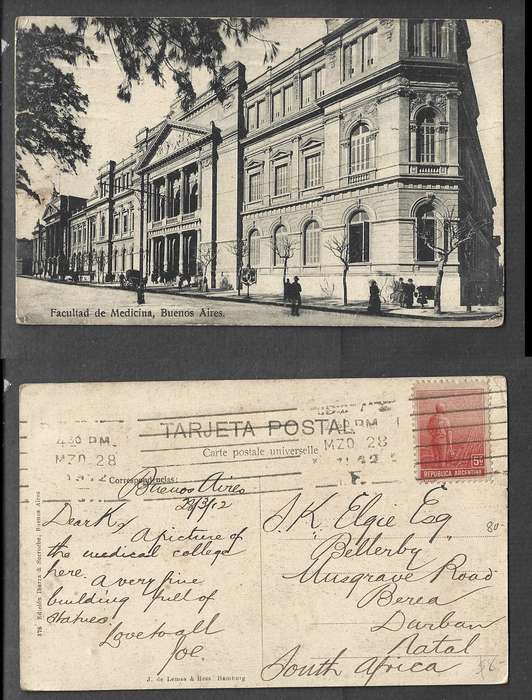 Facultad de Medicina, Buenos Aires.
TARJETA POSTAL
Carte postale universelle
4 30 PM
MZO 28
1912
PM
MZO 28
Correspondencias:
REPUBLICA ARGENTINA
5
Buenos Aires
28/3/12
Dear K,
A picture of
the medical college
here.
A very fine
building full of
statues!
Love to all
Joe.
J. K. Elgie Esq
"Bellerby"
Musgrave Road
Berea
Durban
Natal
South Africa
80-
J. de Lemos & Hess. Hamburg